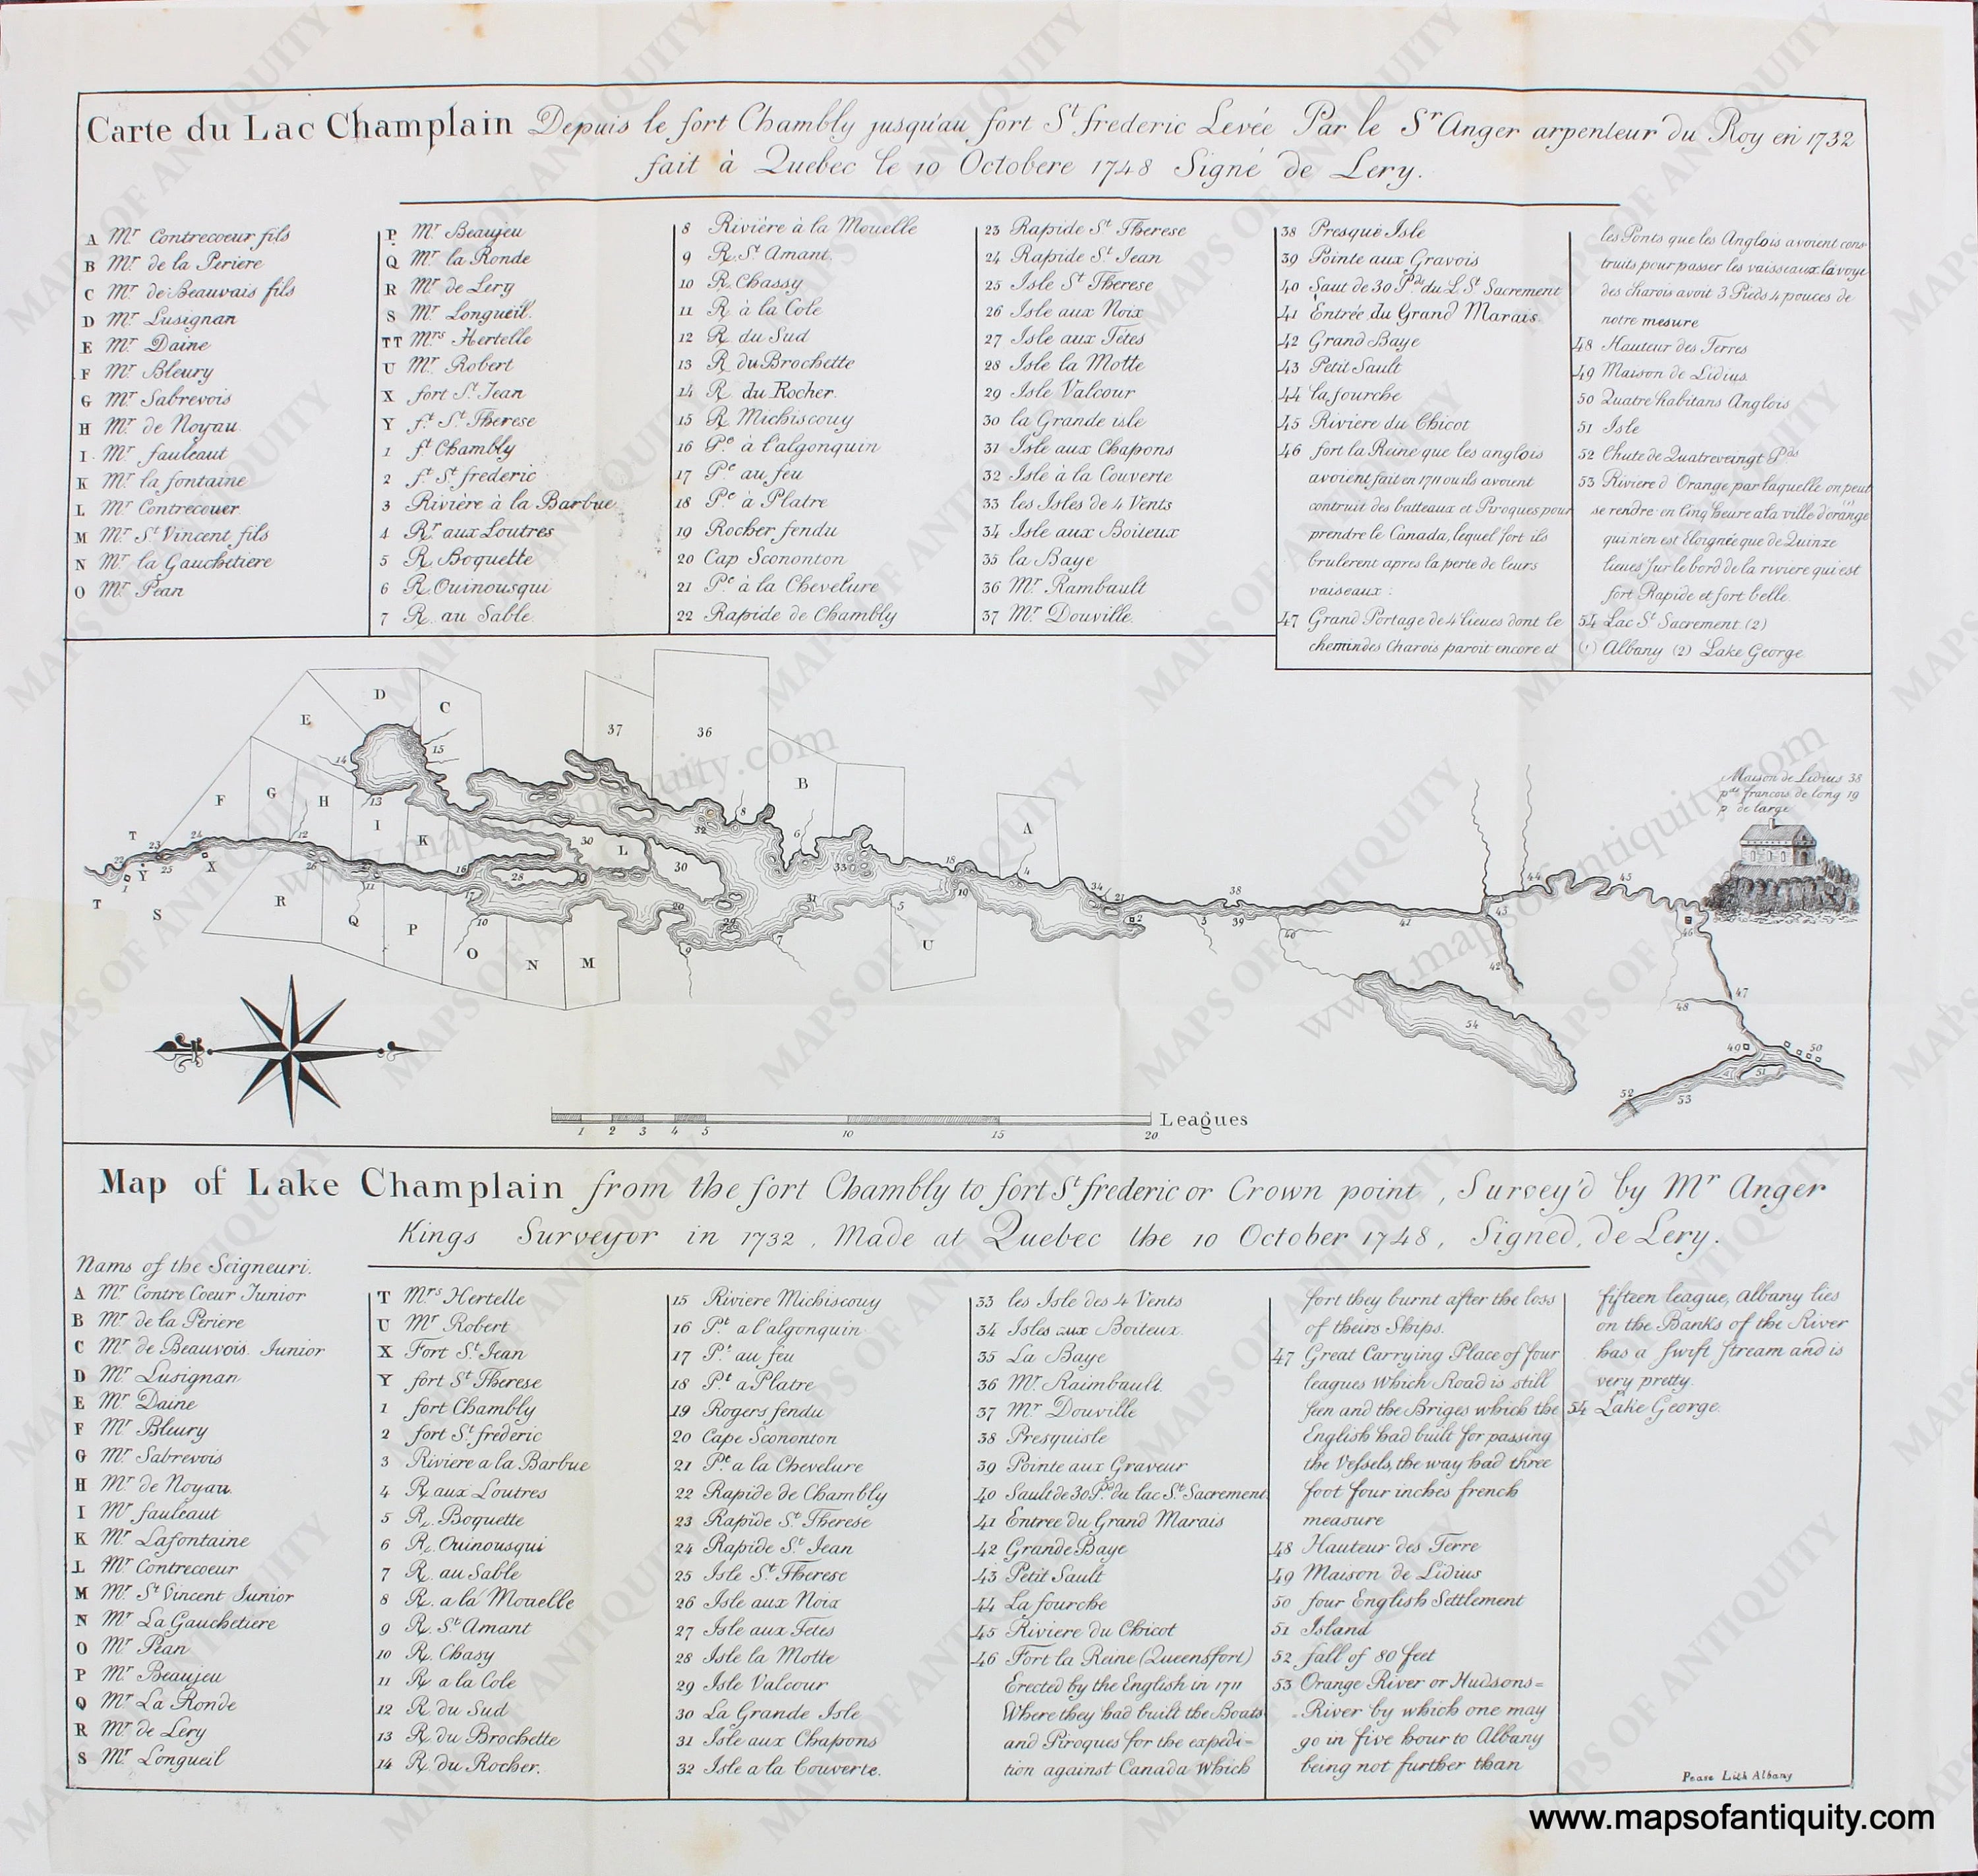 Carte du Lac Champlain Depuis le fort Chambly jusqu'au fort St frederic Levée Par le Sr Anger arpenteur du Roy en 1732
fait à Quebec le 10 Octobere 1748 Signé de Lery.
A Mr Contrecoeur fils
B Mr de la Periere
C Mr de Beauvais fils
D Mr Lusignan
E Mr Daine
F Mr Bleury
G Mr Sabrevois
H Mr de Noyau
I Mr fauleaut
K Mr la fontaine
L Mr Contrecouer
M Mr St Vincent fils
N Mr la Gauchetiere
O Mr Pean
P Mr Beaujeu
Q Mr la Ronde
R Mr de Lery
S Mr Longueil.
TT Mrs Hertelle
U Mr Robert
X fort St Jean
Y ft St Therese
1 ft Chambly
2 ft St frederic
3 Rivière à la Barbue
4 Rr aux Loutres
5 R Boquette
6 R. Ouinousqui
7 R. au Sable
8 Rivière à la Mouelle
9 R. St Amant.
10 R. Chassy
11 R à la Cole
12 R du Sud
13 R du Brochette
14 R du Rocher.
15 R Michiscouy
16 Pe à l'algonquin
17 Pe au feu
18 Pe à Platre
19 Rocher fendu
20 Cap Scononton
21 Pe à la Chevelure
22 Rapide de Chambly
23 Rapide St Therese
24 Rapide St Jean
25 Isle St Therese
26 Isle aux Noix
27 Isle aux Tétes
28 Isle la Motte
29 Isle Valcour
30 la Grande isle
31 Isle aux Chapons
32 Isle à la Couverte
33 les Isles de 4 Vents
34 Isle aux Boiteux
35 la Baye
36 Mr Rambault
37 Mr Douville.
38 Presque Isle
39 Pointe aux Gravois
40 Saut de 30 Pds du L St Sacrement
41 Entrée du Grand Marais.
42 Grand Baye
43 Petit Sault
44 la fourche
45 Riviere du Chicot
46 fort la Reine que les anglois
avoient fait en 1711 ou ils avoient
contruit des batteaux et Piroques pour
prendre le Canada, lequel fort ils
brulerent apres la perte de leurs
vaiseaux :
47 Grand Portage de 4 lieues dont le
chemin des Charois paroit encore et
les Ponts que les Anglois avoient cons
truits pour passer les vaisseaux la voye
des charois avoit 3 Pieds 4 pouces de
notre mesure
48 Hauteur des Terres
49 Maison de Lidius
50 Quatre habitans Anglois
51 Isle
52 Chute de Quatreveingt Pds
53 Riviere d Orange par laquelle on peut
se rendre en Cinq heure a la ville d'orange (1)
qui n'en est Eloignée que de Quinze
lieues sur le bord de la riviere qui est
fort Rapide et fort belle.
54 Lac St Sacrement (2)
(1) Albany (2) Lake George.
D
C
E
37
36
15
14
B
Maison de Lidius 38
pds francois de long 19
p de large
F
G
H
13
I
K
T
23
24
12
22
25
X
26
11
16
30
L
30
32
8
6
33
A
18
4
34
21
38
44
45
1
Y
T
S
R
Q
P
28
17
10
O
N
M
20
29
31
9
7
5
U
19
2
3
39
40
41
43
42
46
47
48
54
49
50
51
52
53
1 2 3 4 5 10 15 20 Leagues
Map of Lake Champlain from the fort Chambly to fort St frederic or Crown point, Survey'd by Mr Anger
Kings Surveyor in 1732, Made at Quebec the 10 October 1748, Signed, de Lery.
Nams of the Seigneuri.
A Mr Contre Coeur Junior
B Mr de la Periere
C Mr de Beauvois Junior
D Mr Lusignan
E Mr Daine
F Mr Bleury
G Mr Sabrevois
H Mr de Noyau.
I Mr fauleaut
K Mr Lafontaine
L Mr Contrecoeur
M Mr St Vincent Junior
N Mr La Gauchetiere
O Mr Pean
P Mr Beaujeu
Q Mr La Ronde
R Mr de Lery
S Mr Longueil
T Mrs Hertelle
U Mr Robert
X Fort St Jean
Y fort St Therese
1 fort Chambly
2 fort St frederic
3 Riviere a la Barbue
4 R aux Loutres
5 R. Boquette
6 R. Ouinousqui
7 R. au Sable
8 R. a la Mouelle
9 R. St Amant
10 R. Chasy
11 R a la Cole
12 R du Sud
13 R du Brochette
14 R du Rocher.
15 Riviere Michiscouy
16 Pt a l'algonquin
17 Pt au feu
18 Pt a Platre
19 Rogers fendu
20 Cape Scononton
21 Pt a la Chevelure
22 Rapide de Chambly
23 Rapide St Therese
24 Rapide St Jean
25 Isle St Therese
26 Isle aux Noix
27 Isle aux Tetes
28 Isle la Motte
29 Isle Valcour
30 La Grande Isle
31 Isle aux Chapons
32 Isle a la Couverte.
33 les Isle des 4 Vents
34 Isles aux Boiteux.
35 La Baye
36 Mr Raimbault.
37 Mr Douville
38 Presquisle
39 Pointe aux Graveur
40 Sault de 30 Pds du lac St Sacrement
41 Entree du Grand Marais
42 Grande Baye
43 Petit Sault
44 La fourche
45 Riviere du Chicot
46 Fort la Reine (Queensfort)
Erected by the English in 1711
Where they had built the Boats
and Piroques for the expedi-
tion against Canada Which
fort they burnt after the loss
of theirs Ships.
47 Great Carrying Place of four
leagues Which Road is still
seen and the Briges which the
English had built for passing
the Vessels, the way had three
foot four inches french
measure
48 Hauteur des Terre
49 Maison de Lidius
50 four English Settlement
51 Island
52 fall of 80 feet
53 Orange River or Hudsons=
River by which one may
go in five hour to Albany
being not further than
fifteen league, albany lies
on the Banks of the River
has a swift stream and is
very pretty.
54 Lake George.
Pease Lith Albany
www.mapsofantiquity.com